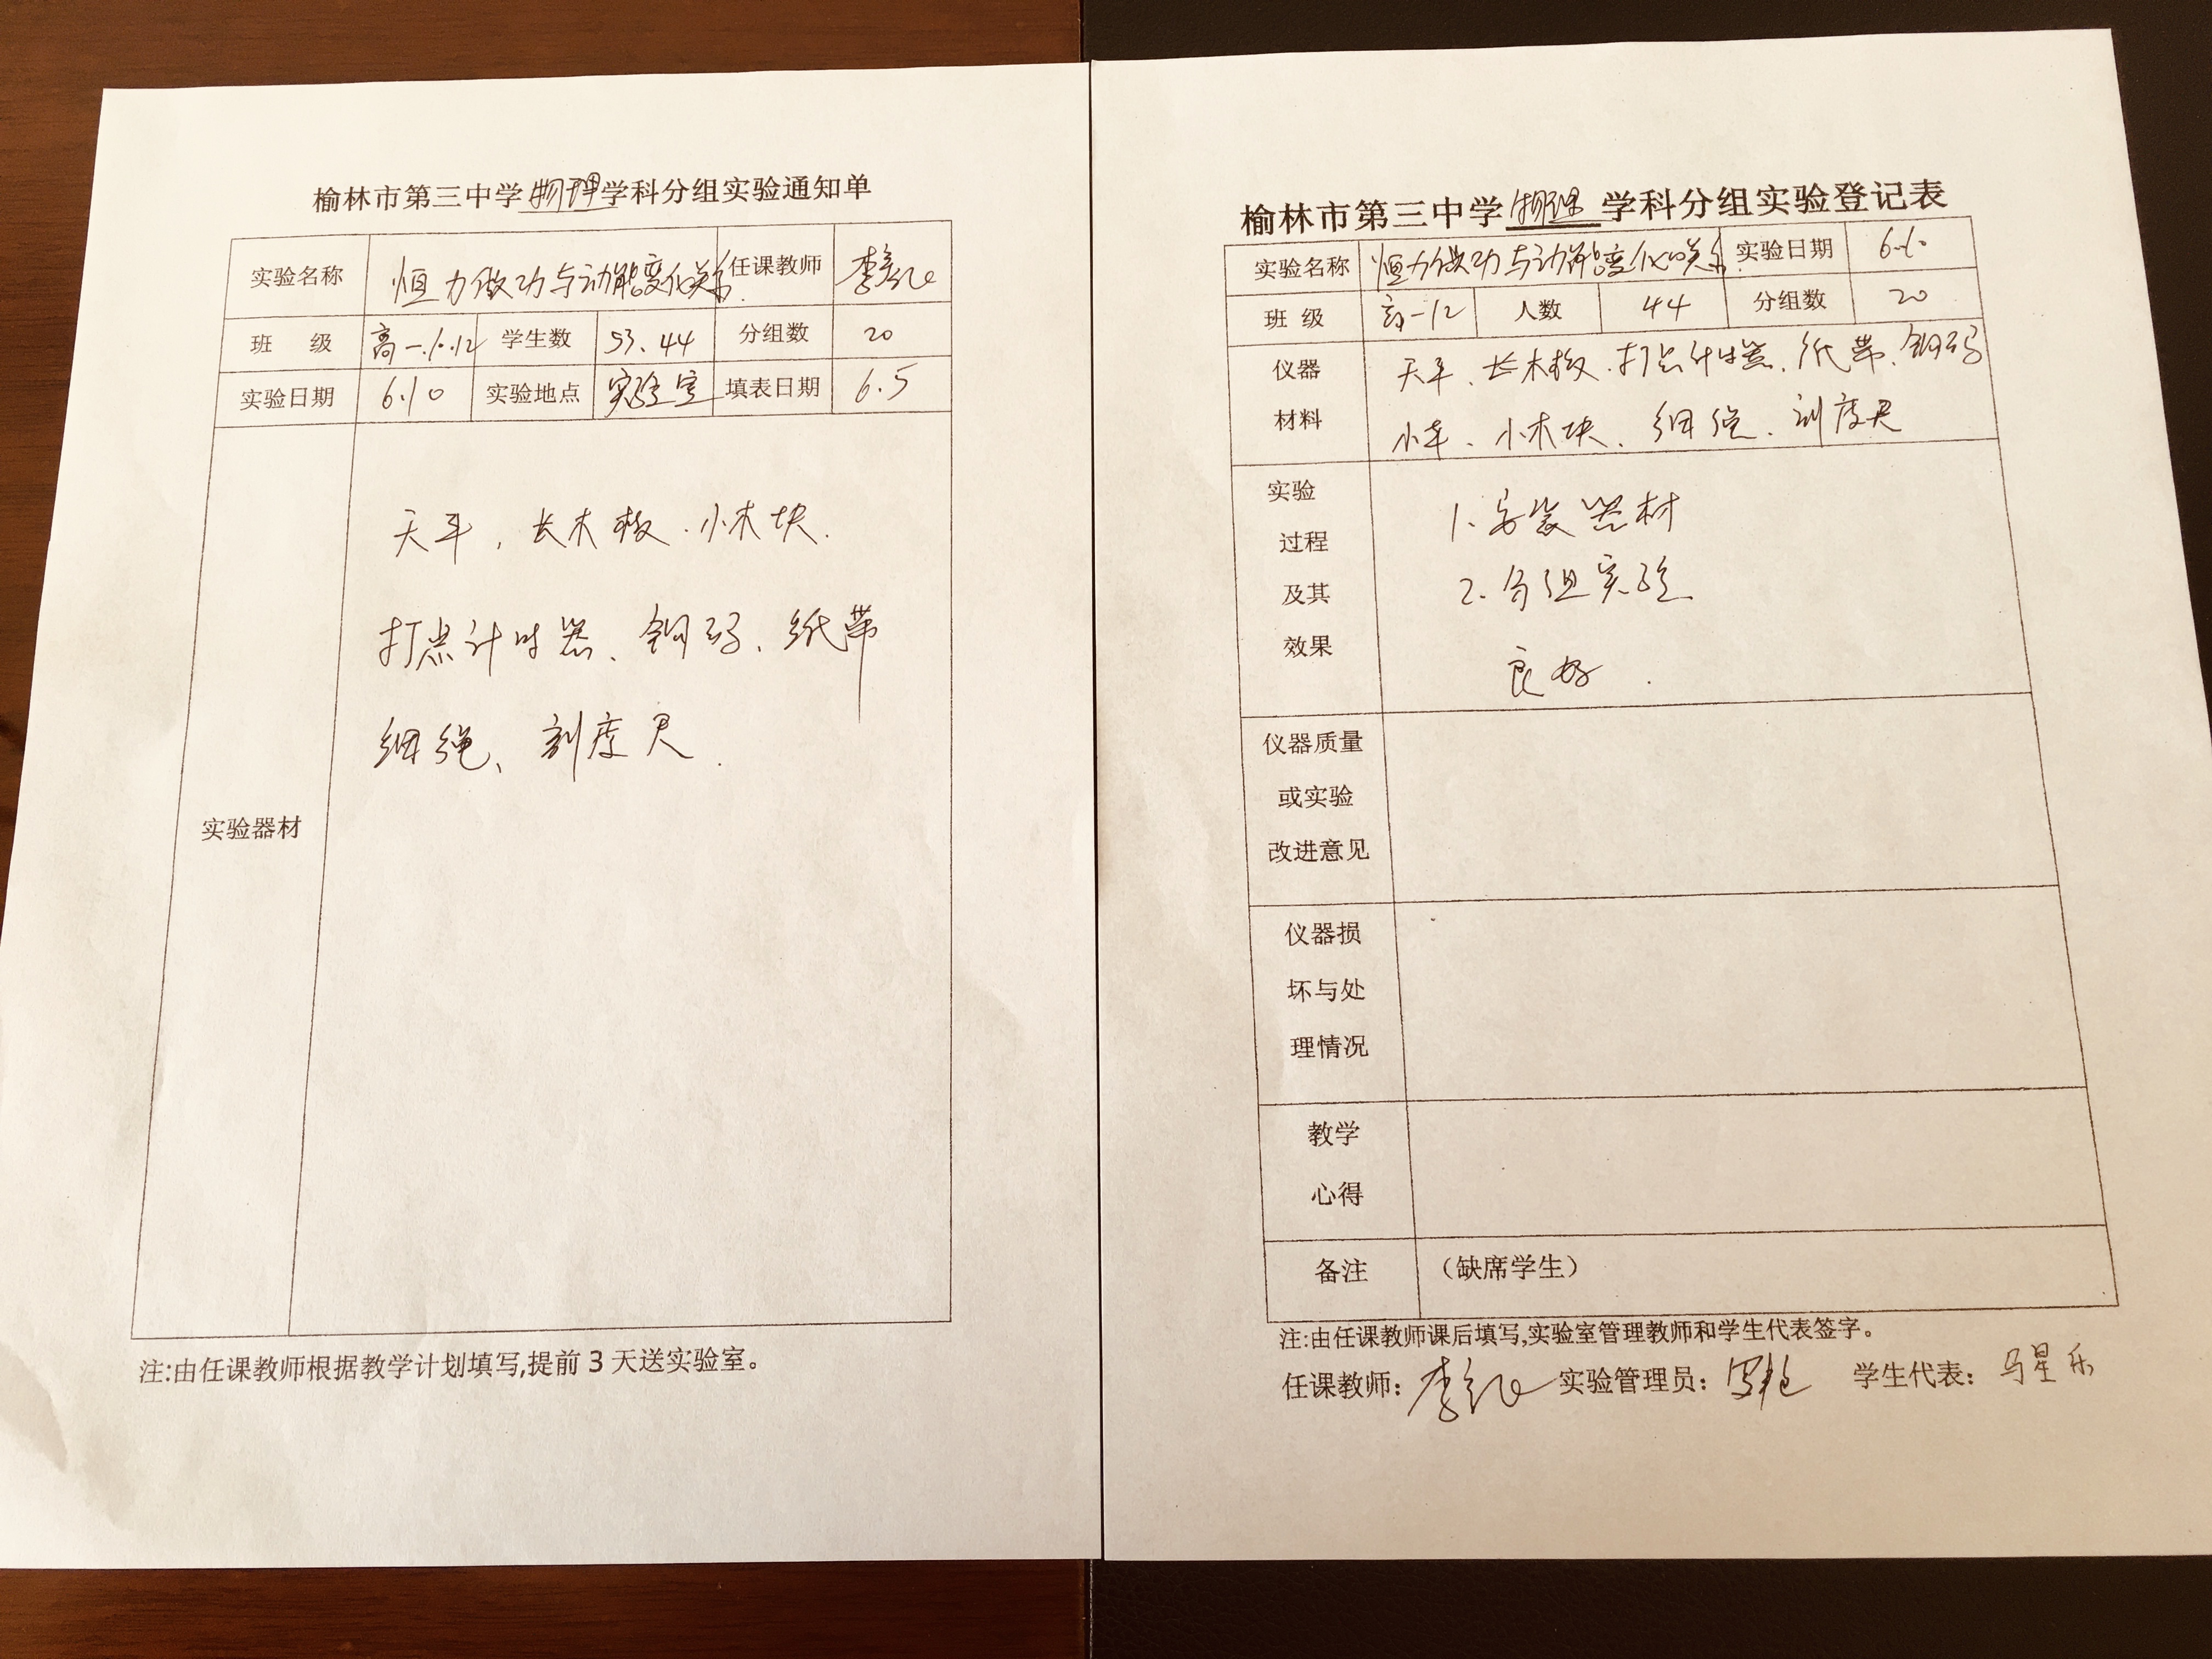 榆林市第三中学物理学科分组实验通知单
实验名称 恒力做功与动能变化关系. 任课教师 李
班 级 高一.1.12 学生数 53、44 分组数 20
实验日期 6.10 实验地点 实验室 填表日期 6.5
实验器材
天平、长木板.小木块.
打点计时器、钩码、纸带
细绳、刻度尺.
注:由任课教师根据教学计划填写,提前3天送实验室。
榆林市第三中学物理学科分组实验登记表
实验名称 恒力做功与动能变化的关系. 实验日期 6.10
班 级 高一12 人数 44 分组数 20
仪器 天平、长木板.打点计时器、纸带、钩码
材料 小车、小木块、细绳、刻度尺
实验 1、安装器材
过程
及其 2.分组实验
效果 良好.
仪器质量
或实验
改进意见
仪器损
坏与处
理情况
教学
心得
备注 (缺席学生)
注:由任课教师课后填写,实验室管理教师和学生代表签字。
任课教师: 李 实验管理员: 学生代表: 马星乐